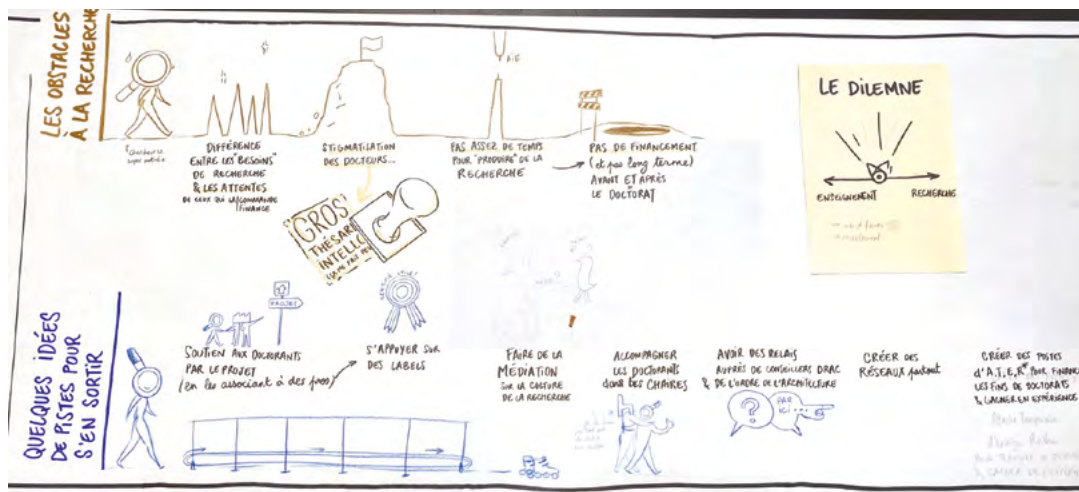 LES OBSTACLES
À LA RECHERCHE
DIFFÉRENCE
ENTRE LES "BESOINS"
DE RECHERCHE
& LES ATTENTES
DE CEUX QUI LA COMMANDE
FINANCE
STIGMATISATION
DES DOCTEURS...
"GROS"
THÉSARD
INTELLO
PAS ASSEZ DE TEMPS
POUR "PRODUIRE" DE LA
RECHERCHE
AÏE
PAS DE FINANCEMENT
(et pas long terme)
AVANT ET APRÈS
LE DOCTORAT
LE DILEMNE
ENSEIGNEMENT
RECHERCHE
QUELQUES IDÉES
DE PISTES POUR
S'EN SORTIR
PROJET
SOUTIEN AUX DOCTORANTS
PAR LE PROJET
(en les associant à des pros)
S'APPUYER SUR
DES LABELS
FAIRE DE LA
MÉDIATION
SUR LA CULTURE
DE LA RECHERCHE
ACCOMPAGNER
LES DOCTORANTS
dans DES CHAIRES
AVOIR DES RELAIS
AUPRÈS DE CONSEILLERS DRAC
& DE L'ORDRE DE L'ARCHITECTURE
?
PAR
ICI
CRÉER DES
RÉSEAUX partout
CRÉER DES POSTES
d'A.T.E.R* POUR FINANCER
LES FINS DE DOCTORATS
& GAGNER EN EXPÉRIENCE